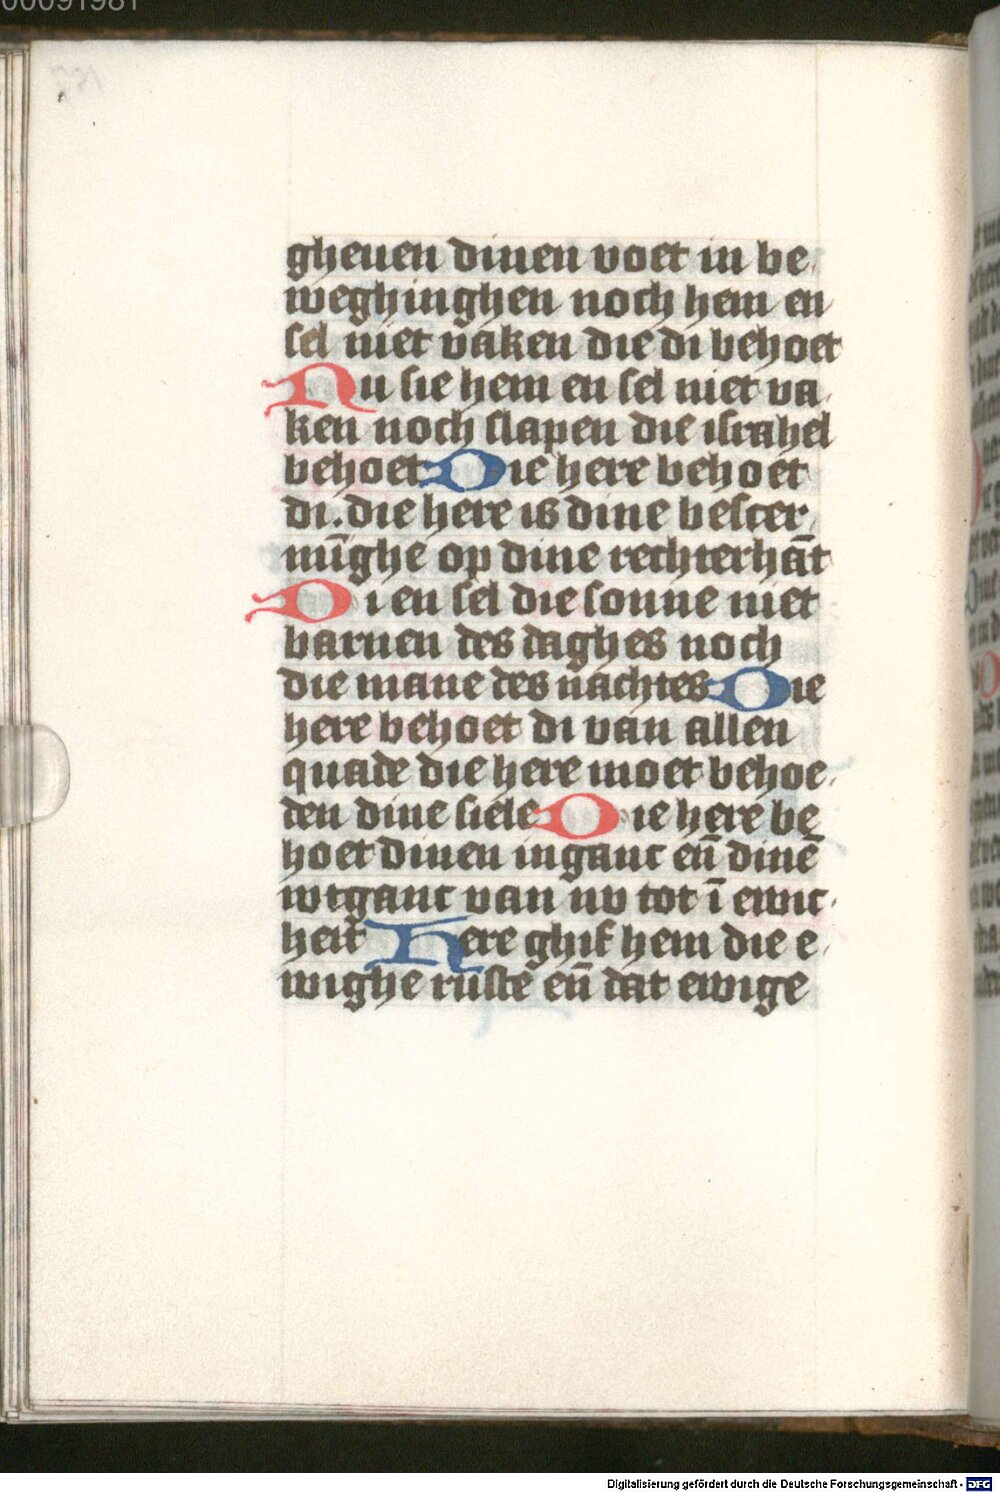 00091981
gheuen dinen voet in be
weghinghen noch hem en
sel niet vaken die di behoet
Nu sie hem en sel niet va
ken noch slapen die israhel
behoet Die here behoet
di. die here is dine bescer
mīghe op dine rechterhāt
Di en sel die sonne niet
barnen des daghes noch
die mane des nachtes Die
here behoet di van allen
quade die here moet behoe
den dine siele Die here be
hoet dinen inganc en̄ dinē
wtganc van nv tot ī ewic
heit Here ghif hem die e
wighe ruste en̄ dat ewige
Digitalisierung gefördert durch die Deutsche Forschungsgemeinschaft - DFG